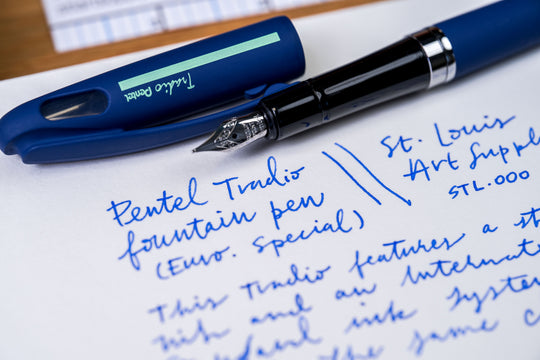 Tradio Pentel
Pentel Tradio
fountain pen
(Euro. Special)
St. Louis
Art Suppl
STL.000
This Tradio features a st
nib and an Internat
standard ink system
the same c